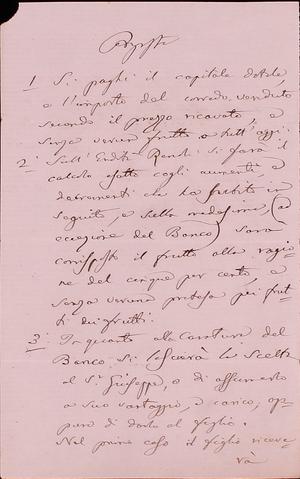 Proposte
1. Si paghi il capitale dotale,
e l'importo del corredo venduto
secondo il prezzo ricavato, e
senza verun frutto a tutt'oggi.
2. Sull' Rendi si farà il
calcolo esatto cogli aumenti, e
detrimenti che ha subito in
seguito, e sulla medesima, (a
eccezione del Banco) sarà
corrisposto il frutto alla ragio=
ne del cinque per cento, e
senza veruna pretesa pei frut=
ti dei frutti.
3. In quanto alla Caratura del
Banco si lascierà la scelta
al Sr. Giuseppe, o di assumerlo
a suo vantaggio, e carico, op=
pure di darlo al figlio.
Nel primo caso il figlio riceve=
rà